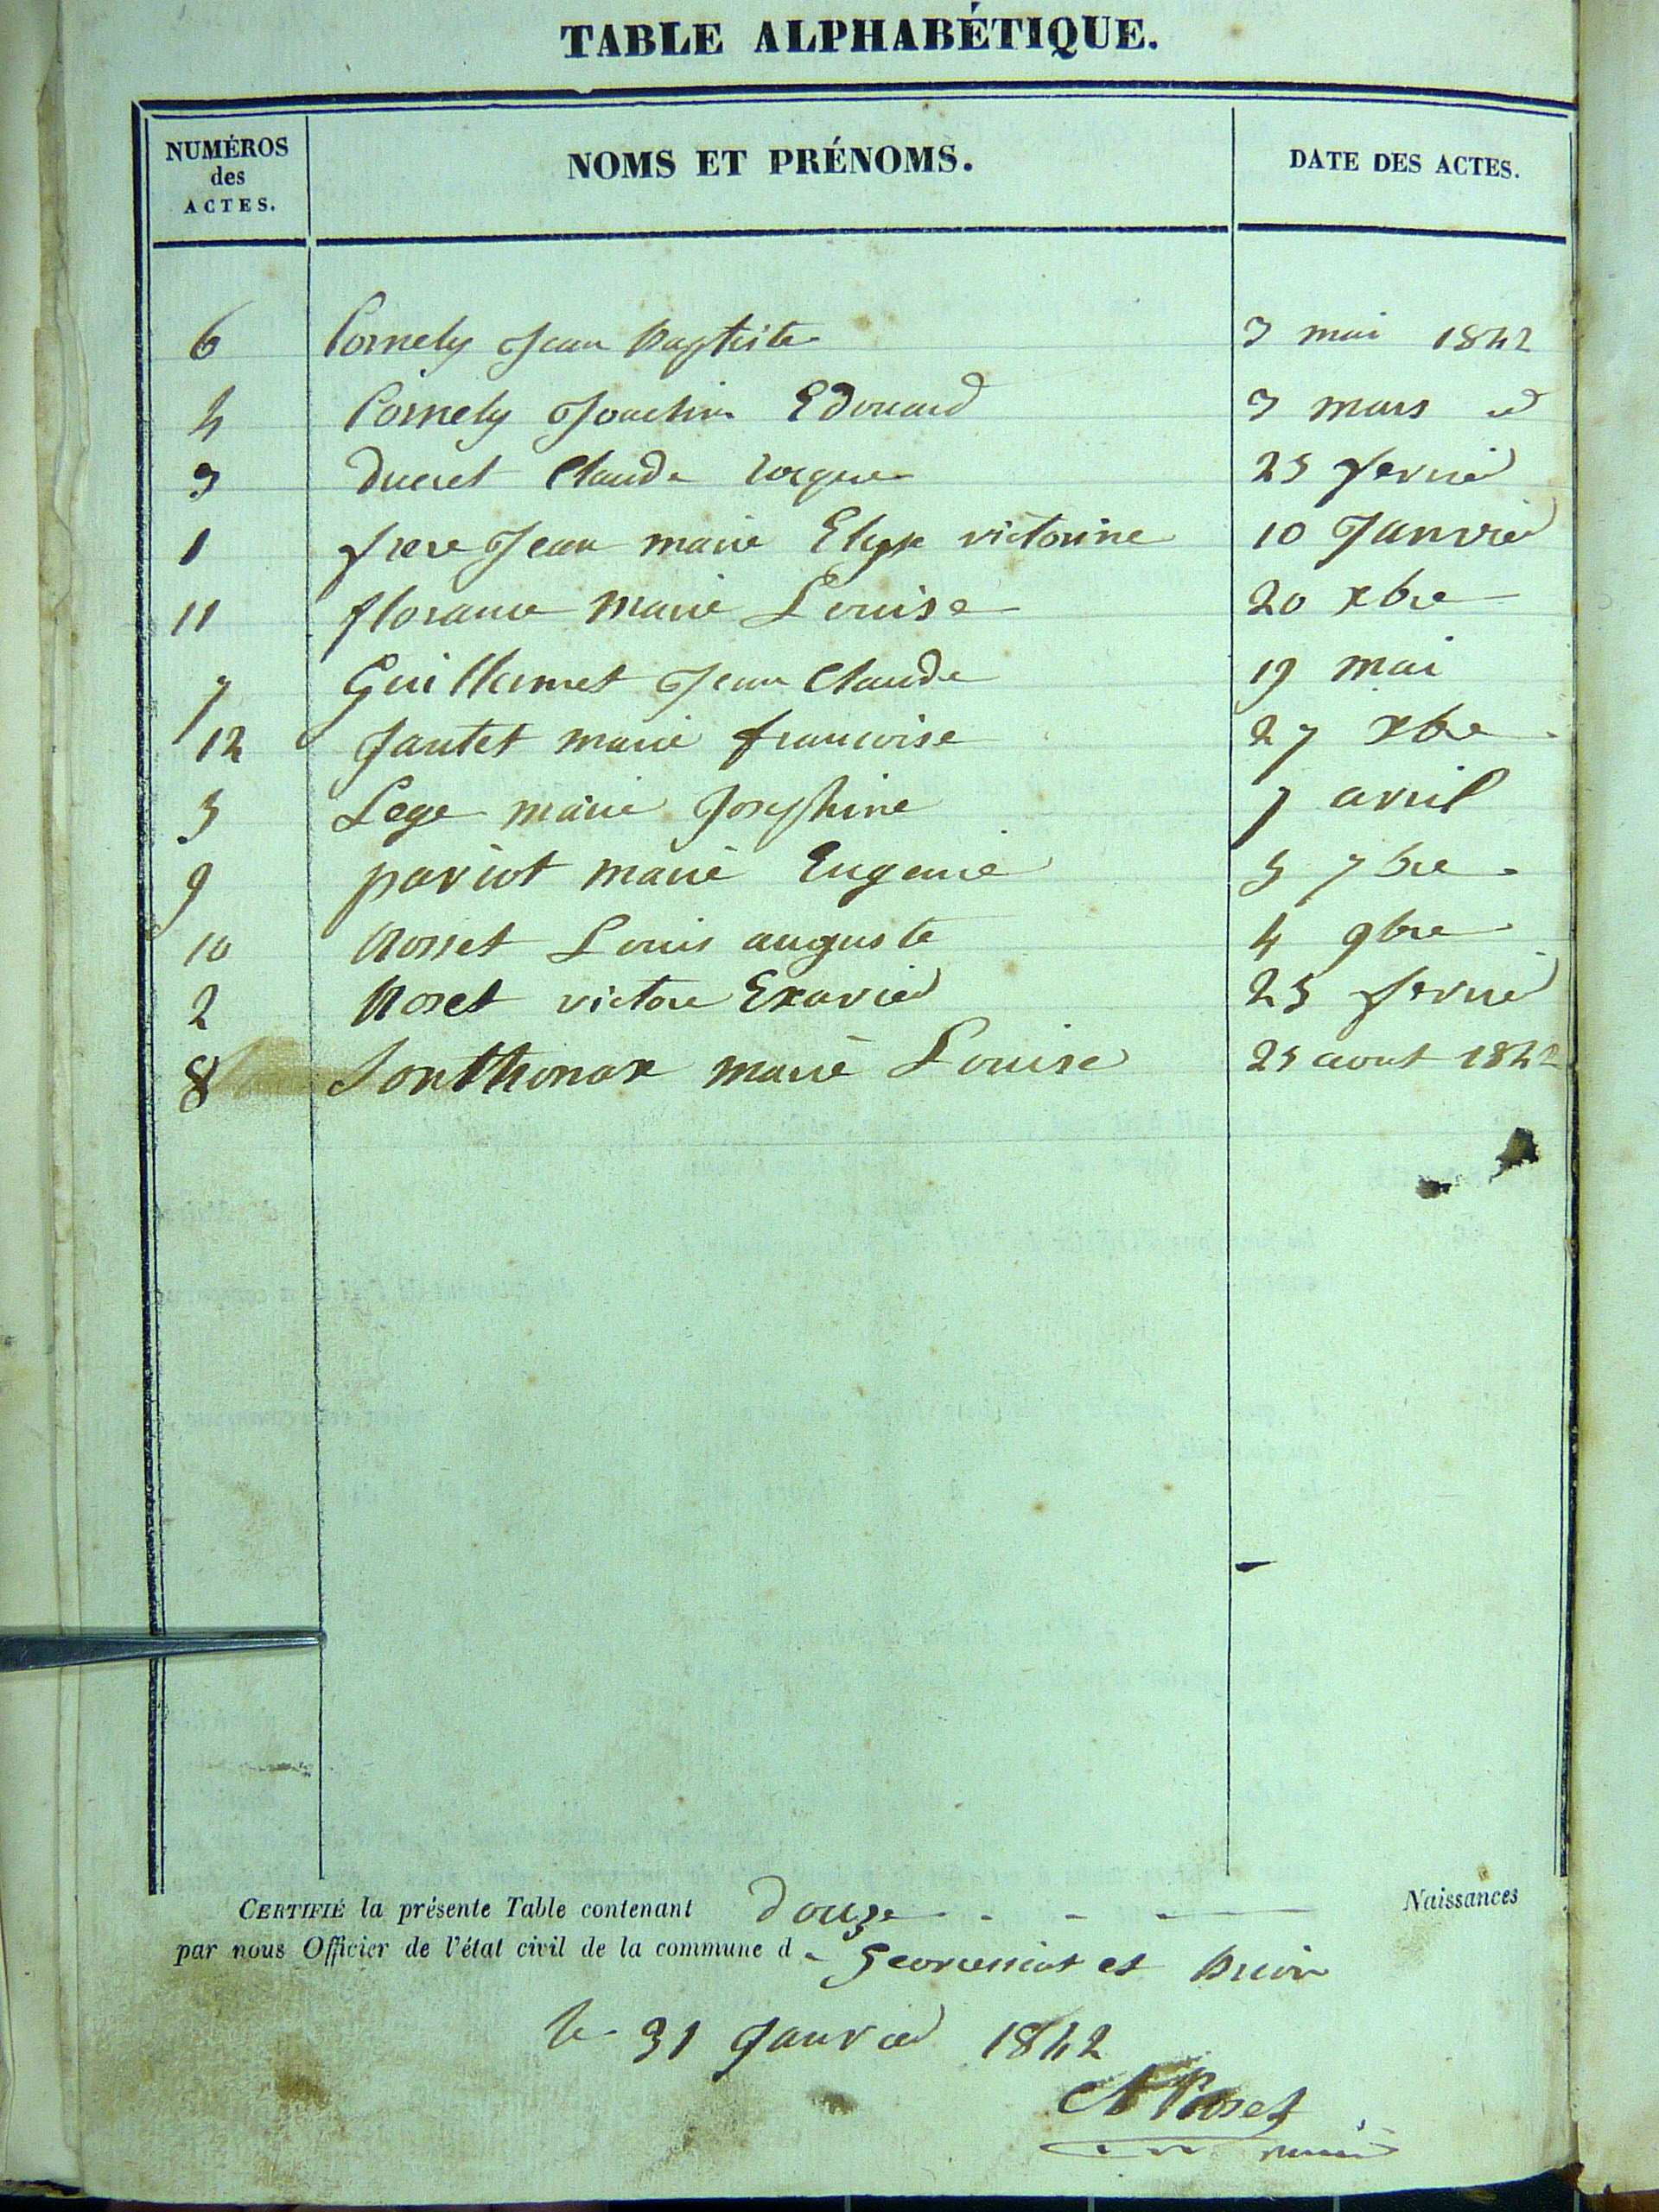 TABLE ALPHABÉTIQUE.
NUMÉROS des ACTES. NOMS ET PRÉNOMS. DATE DES ACTES.
6 Cornely Jean Baptiste 3 mai 1842
4 Cornely Joachim Edouard 3 mars id
3 Ducret Claude 25 fevrier
1 frere Jean marie victorine 10 Janvier
11 florance marie Louise 20 xbre
7 Guillamet Jean Claude 19 mai
12 Jantet marie francoise 27 xbre
5 Lege marie Josephine 7 avril
9 pariot marie Eugenie 5 7bre
10 Rosset Louis auguste 4 9bre
2 Roset victore Exavier 25 fevrier
8 Sonthonax marie Louise 25 aout 1842
CERTIFIÉ la présente Table contenant douze Naissances
par nous Officier de l'état civil de la commune d et
le 31 Janvier 1842
Roset